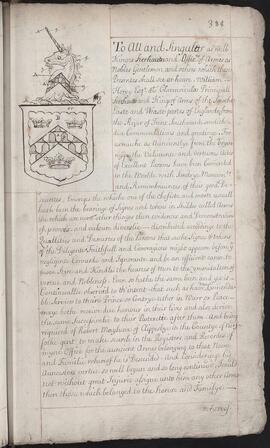 384
To All and Singuler as well
Kings Herhaults and Officers of Armes as
Nobles Gentlemen and others which these
Presents shall see or heare William
Hervy Esqr als Clarencieulx Principall
Herhault and King of Armes of the South
East and West parties of England from
the River of Trent Southward sendeth humble
Commendations and greeting For
as much as Aunciently from the
the Valiant and vertuous Actes
of Excellent Persons have been Commended
to the World with Sondry Monuments
and Remembrances of their good De-
meritts Emongs the which one of the chiefest and most usuall
hath been the bearings of Signes and tokens in Shildes called Armes
the which are none other things then evidences and Demonstrations
of prowes and valoure diversly distributed according to the
Quallities and Demerits of the Persons that such Signes &
of the Diligent Faithfull and Couragious might appeare before the
negligent Coward and Ignorant and be an efficient cause to
move Styrr and Kindle the hearts of Men to the
vertue and Noblenesse Even so hath the same been and yet is
Continually observed to th'intent that such as have Commenda-
ble Service to their Prince or Contrye either in Warr or Peace
may both receive due honour in their lives and also derive
the same Successively to their Posteritie after them And being
required of Robert Maphew of Clippesby in the County of Nor-
folke gent to make search in the Registers and Recordes of
myne Office for the auncient Armes belonging to that Name
and Family whereof he is Descended And considering his
Auncestors vertue so well begun and so long continued I could
not without great Injurie assigne unto him any other Armes
then those which belonged to the House and Familye